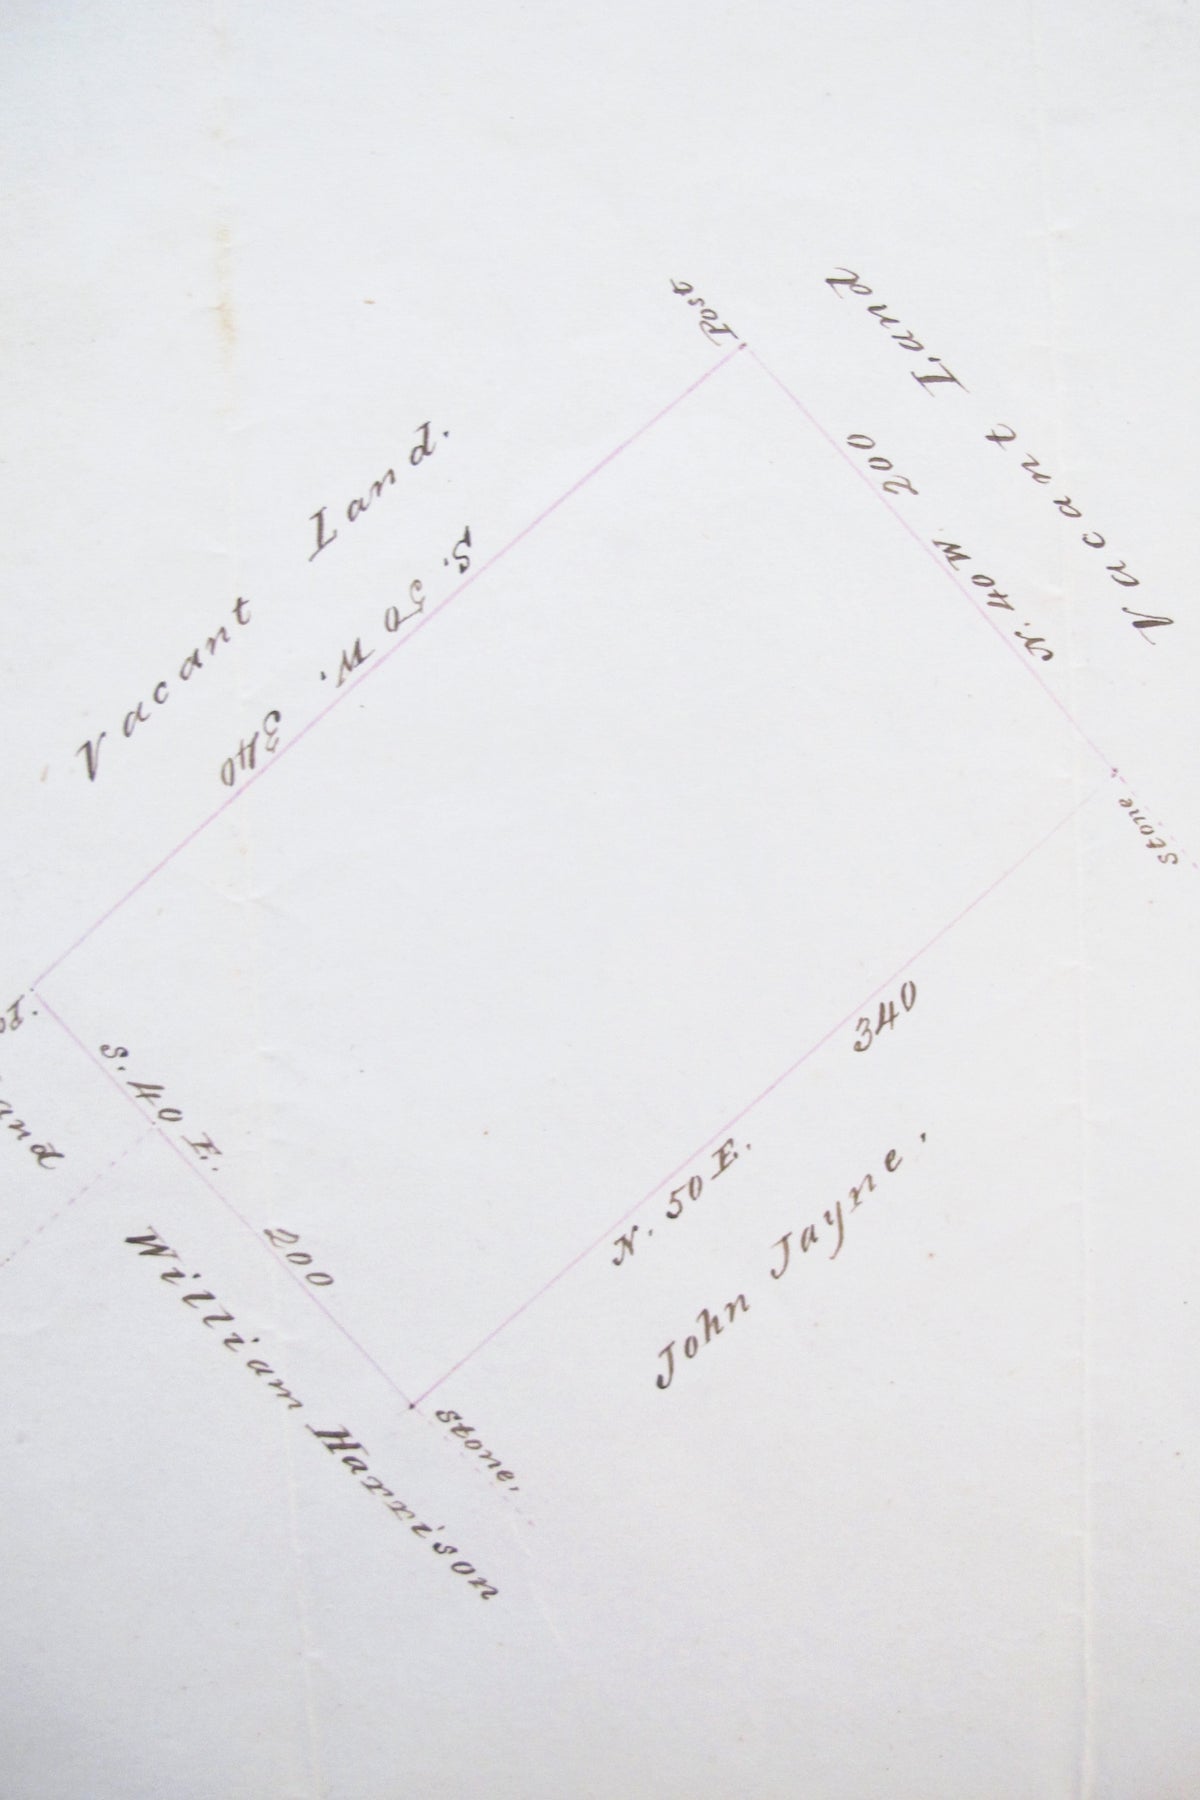 Post
Vacant Land
Vacant Land.
S. 50 W. 340
N. 40 W. 200
stone
S. 40 E. 200
N. 50 E. 340
John Jayne.
William Harrison
stone.